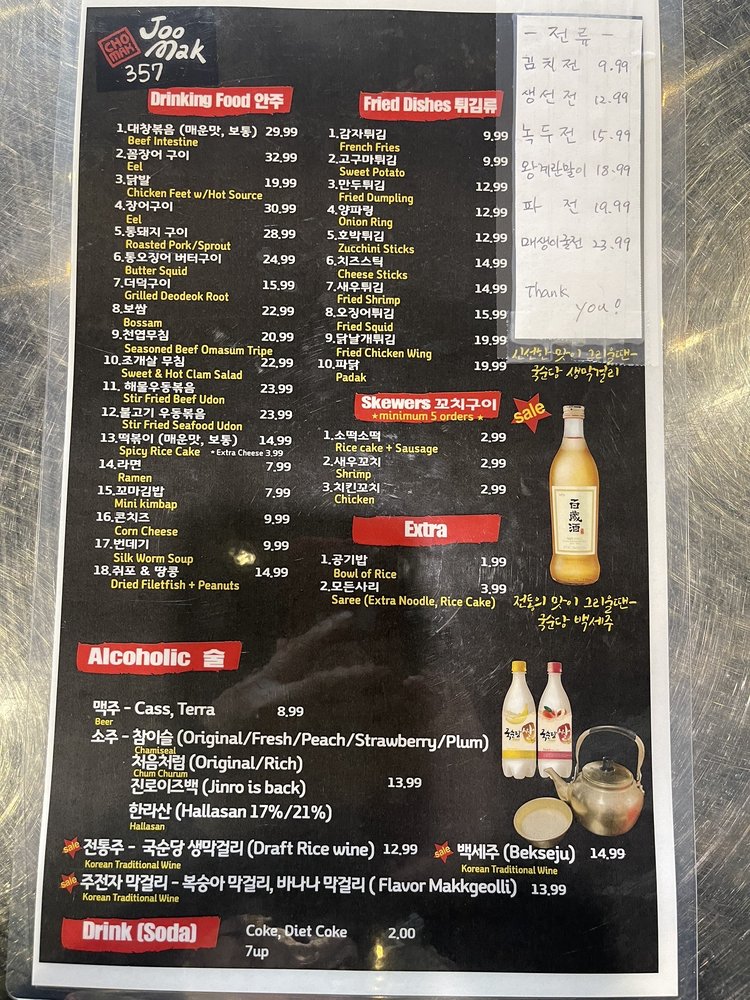 CHO MAK
Joo
Mak
357
Drinking Food 안주
1.대창볶음 (매운맛, 보통) 29,99
Beef Intestine
2.꼼장어 구이 32,99
Eel
3.닭발 19,99
Chicken Feet w/Hot Source
4.장어구이 30,99
Eel
5.통돼지 구이 28,99
Roasted Pork/Sprout
6.통오징어 버터구이 24,99
Butter Squid
7.더덕구이 15,99
Grilled Deodeok Root
8.보쌈 22,99
Bossam
9.천엽무침 20,99
Seasoned Beef Omasum Tripe
10.조개살 무침 22,99
Sweet & Hot Clam Salad
11. 해물우동볶음 23,99
Stir Fried Beef Udon
12.불고기 우동볶음 23,99
Stir Fried Seafood Udon
13.떡볶이 (매운맛, 보통) 14,99
Spicy Rice Cake * Extra Cheese 3,99
14.라면 7,99
Ramen
15.꼬마김밥 7,99
Mini kimbap
16.콘치즈 9,99
Corn Cheese
17.번데기 9,99
Silk Worm Soup
18.쥐포 & 땅콩 14,99
Dried Filetfish + Peanuts
Fried Dishes 튀김류
1.감자튀김 9,99
French Fries
2.고구마튀김 9,99
Sweet Potato
3.만두튀김 12,99
Fried Dumpling
4.양파링 12,99
Onion Ring
5.호박튀김 12,99
Zucchini Sticks
6.치즈스틱 14,99
Cheese Sticks
7.새우튀김 14,99
Fried Shrimp
8.오징어튀김 15,99
Fried Squid
9.닭날개튀김 19,99
Fried Chicken Wing
10.파닭 19,99
Padak
Skewers 꼬치구이
★minimum 5 orders★
1.소떡소떡 2,99
Rice cake + Sausage
2.새우꼬치 2,99
Shrimp
3.치킨꼬치 2,99
Chicken
Extra
1.공기밥 1,99
Bowl of Rice
2.모든사리 3,99
Saree (Extra Noodle, Rice Cake)
- 전 류 -
김치전 9.99
생선전 12.99
녹두전 15.99
왕계란말이 18.99
파 전 19.99
매생이굴전 23.99
Thank
you!
신선한 맛이 그리울땐-
국순당 생막걸리
sale
百歲酒
전통의 맛이 그리울땐-
국순당 백세주
국순당 쌀
국순당 쌀
Alcoholic 술
맥주 - Cass, Terra 8,99
Beer
소주 - 참이슬 (Original/Fresh/Peach/Strawberry/Plum)
Chamiseal
처음처럼 (Original/Rich)
Chum Churum
진로이즈백 (Jinro is back) 13,99
한라산 (Hallasan 17%/21%)
Hallasan
sale 전통주 - 국순당 생막걸리 (Draft Rice wine) 12,99
Korean Traditional Wine
sale 백세주 (Bekseju) 14,99
Korean Traditional Wine
sale 주전자 막걸리 - 복숭아 막걸리, 바나나 막걸리 ( Flavor Makkgeolli) 13,99
Korean Traditional Wine
Drink (Soda)
Coke, Diet Coke 2,00
7up